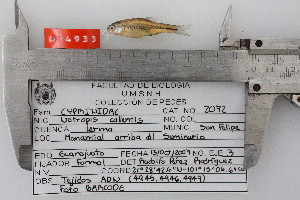 P-4933
FACULTAD DE BIOLOGIA
U M S N H
COLECCION DE PECES
FAM. CYPRINIDAE CAT NO. 2072
N.C. Notropis calientis NO. COL.
CUENCA Lerma MUNIC. San Felipe
LOC. Manantial arriba del Seminario
EDO. Guanajuato FECHA 13/oct/2007 NO. EJE. 3
FIJADOR Formol DET. Rodolfo Pérez Rodríguez
N.V. COORD.
OBS. Tejidos ADN (4945, 4946, 4947)
Foto BARCODE